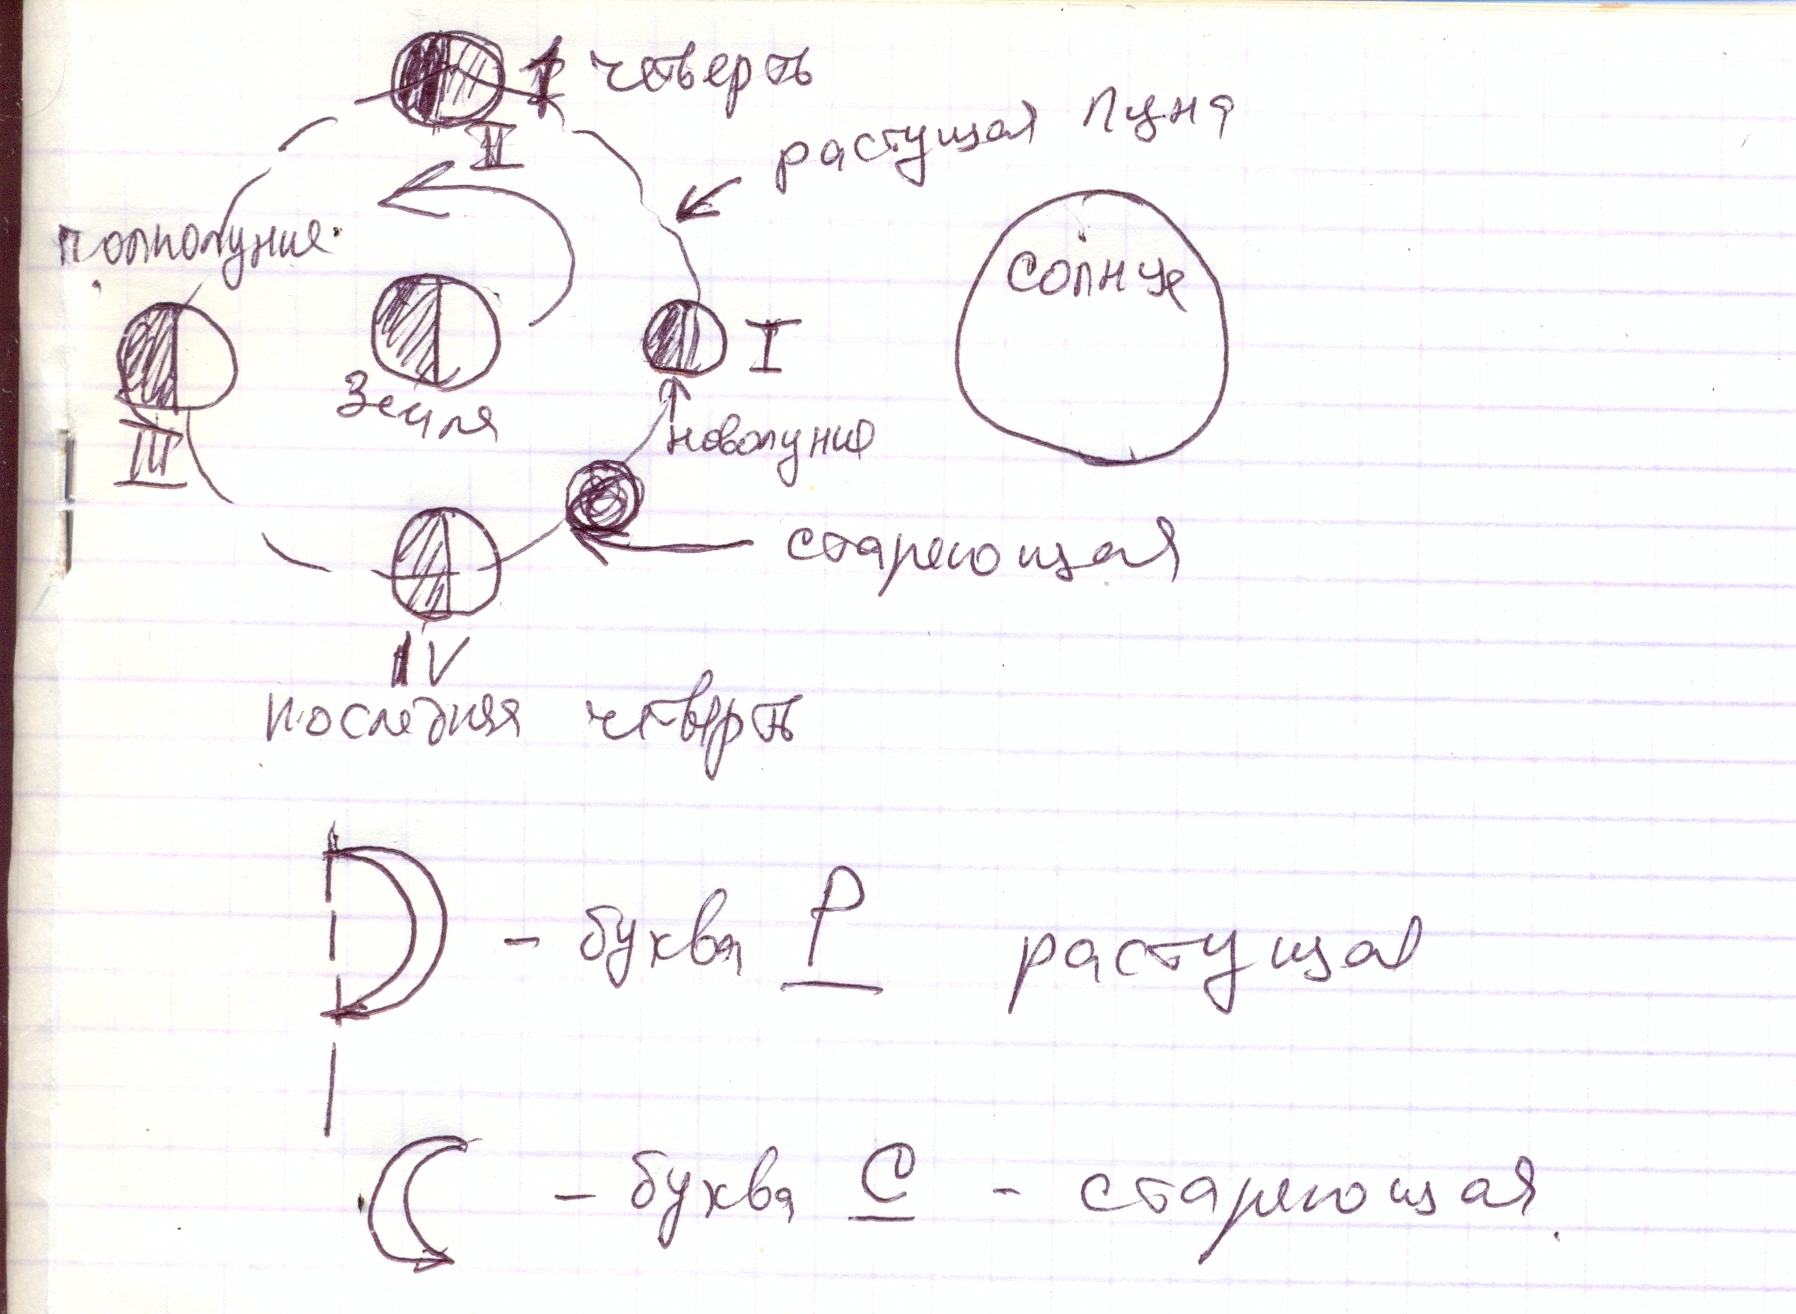 I четверть
II
растущая луна
полнолуние
солнце
I
Земля
III
новолуние
стареющая
IV
последняя четверть
– буква Р растущая
– буква С – стареющая.